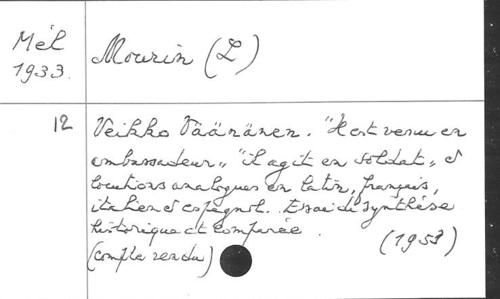 Mél
1933.
Mourin (L)
12
Veikko Väänänen. "Il est venu en
ambassadeur", "il agit en soldat", et
locutions analogues en latin, français,
italien et espagnol. Essai de synthèse
historique et comparée.
(1953)
(compte rendu)